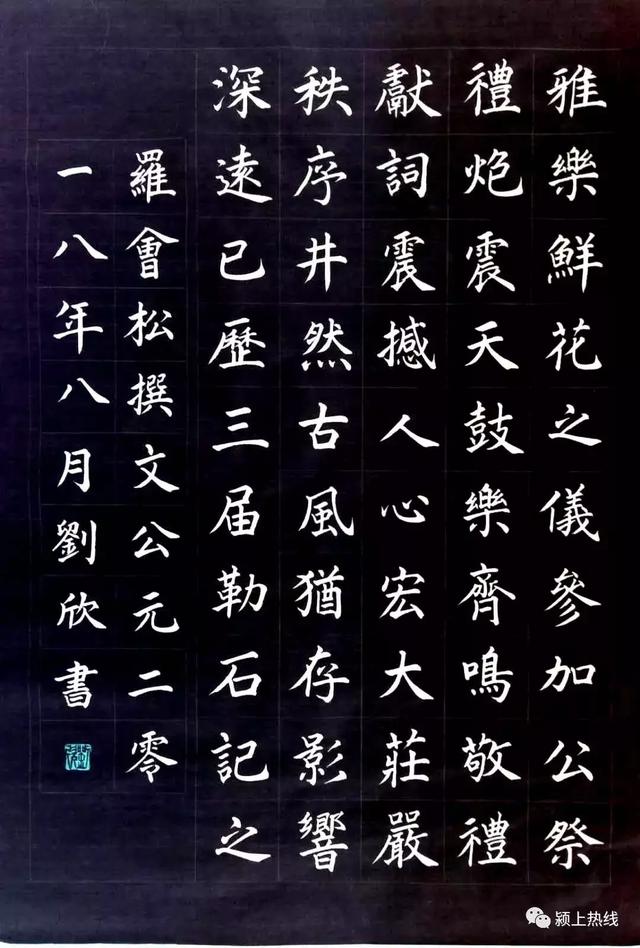 雅樂鮮花之儀參加公祭
禮炮震天鼓樂齊鳴敬禮
獻詞震撼人心宏大莊嚴
秩序井然古風猶存影響
深遠已歷三届勒石記之
羅會松撰文公元二零
一八年八月劉欣書
颍上热线